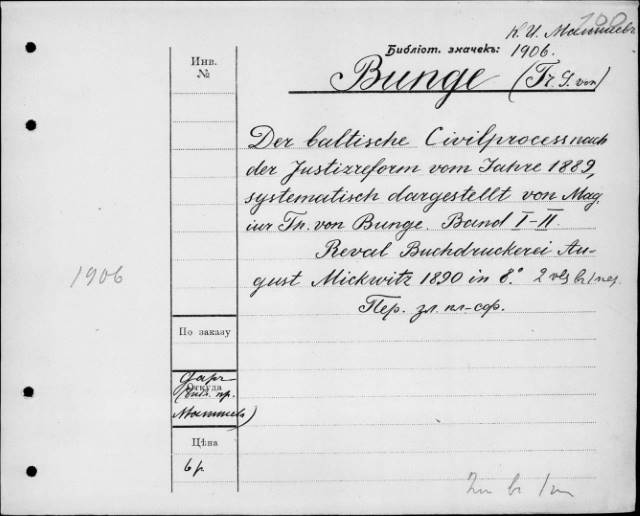 Инв.
№
К. И. Маттиевъ
Библіот. значекъ: 1906.
Bunge (Th. G. von)
Der baltische Civilprocess nach
der Justizreform vom Jahre 1889,
systematisch dargestellt von Mag.
iur Th. von Bunge. Band I-II.
Reval Buchdruckerei Au-
gust Mickwitz 1890 in 8.° 2 vls
Пер. зл. кл-соф.
1906
По заказу
Даръ
Откуда
(библ. пр.
Маттиевъ)
Цѣна
6 р